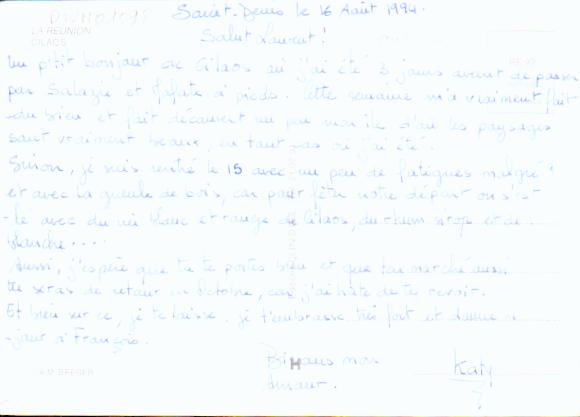 Saint-Denis le 16 Août 1994.
LA REUNION
CILAOS
Salut Laurent!
Un p'tit bonjour de Cilaos où j'ai été 3 jours avant de passer
par Salazie et Mafate à pieds. Cette semaine m'a vraiment fait
du bien et fait découvrir un peu mon île d'où les paysages
sont vraiment beaux, en tout cas où j'ai été.
Sinon, je suis rentré le 15 avec un peu de fatigues malgré
et avec la gueule de bois, car pour fêter notre départ on s'est
-lé avec du vin blanc et rouge de Cilaos, du rhum sirop et de
blanche....
Aussi, j'espère que tu te portes bien et que ton marché aussi
tu seras de retour en Octobre, car j'ai hâte de te revoir.
Et bien sur ce, je te laisse. je t'embrasse très fort et donne
-jour à François.
Bisous mon
Amour.
Katy
A.M. BREGER